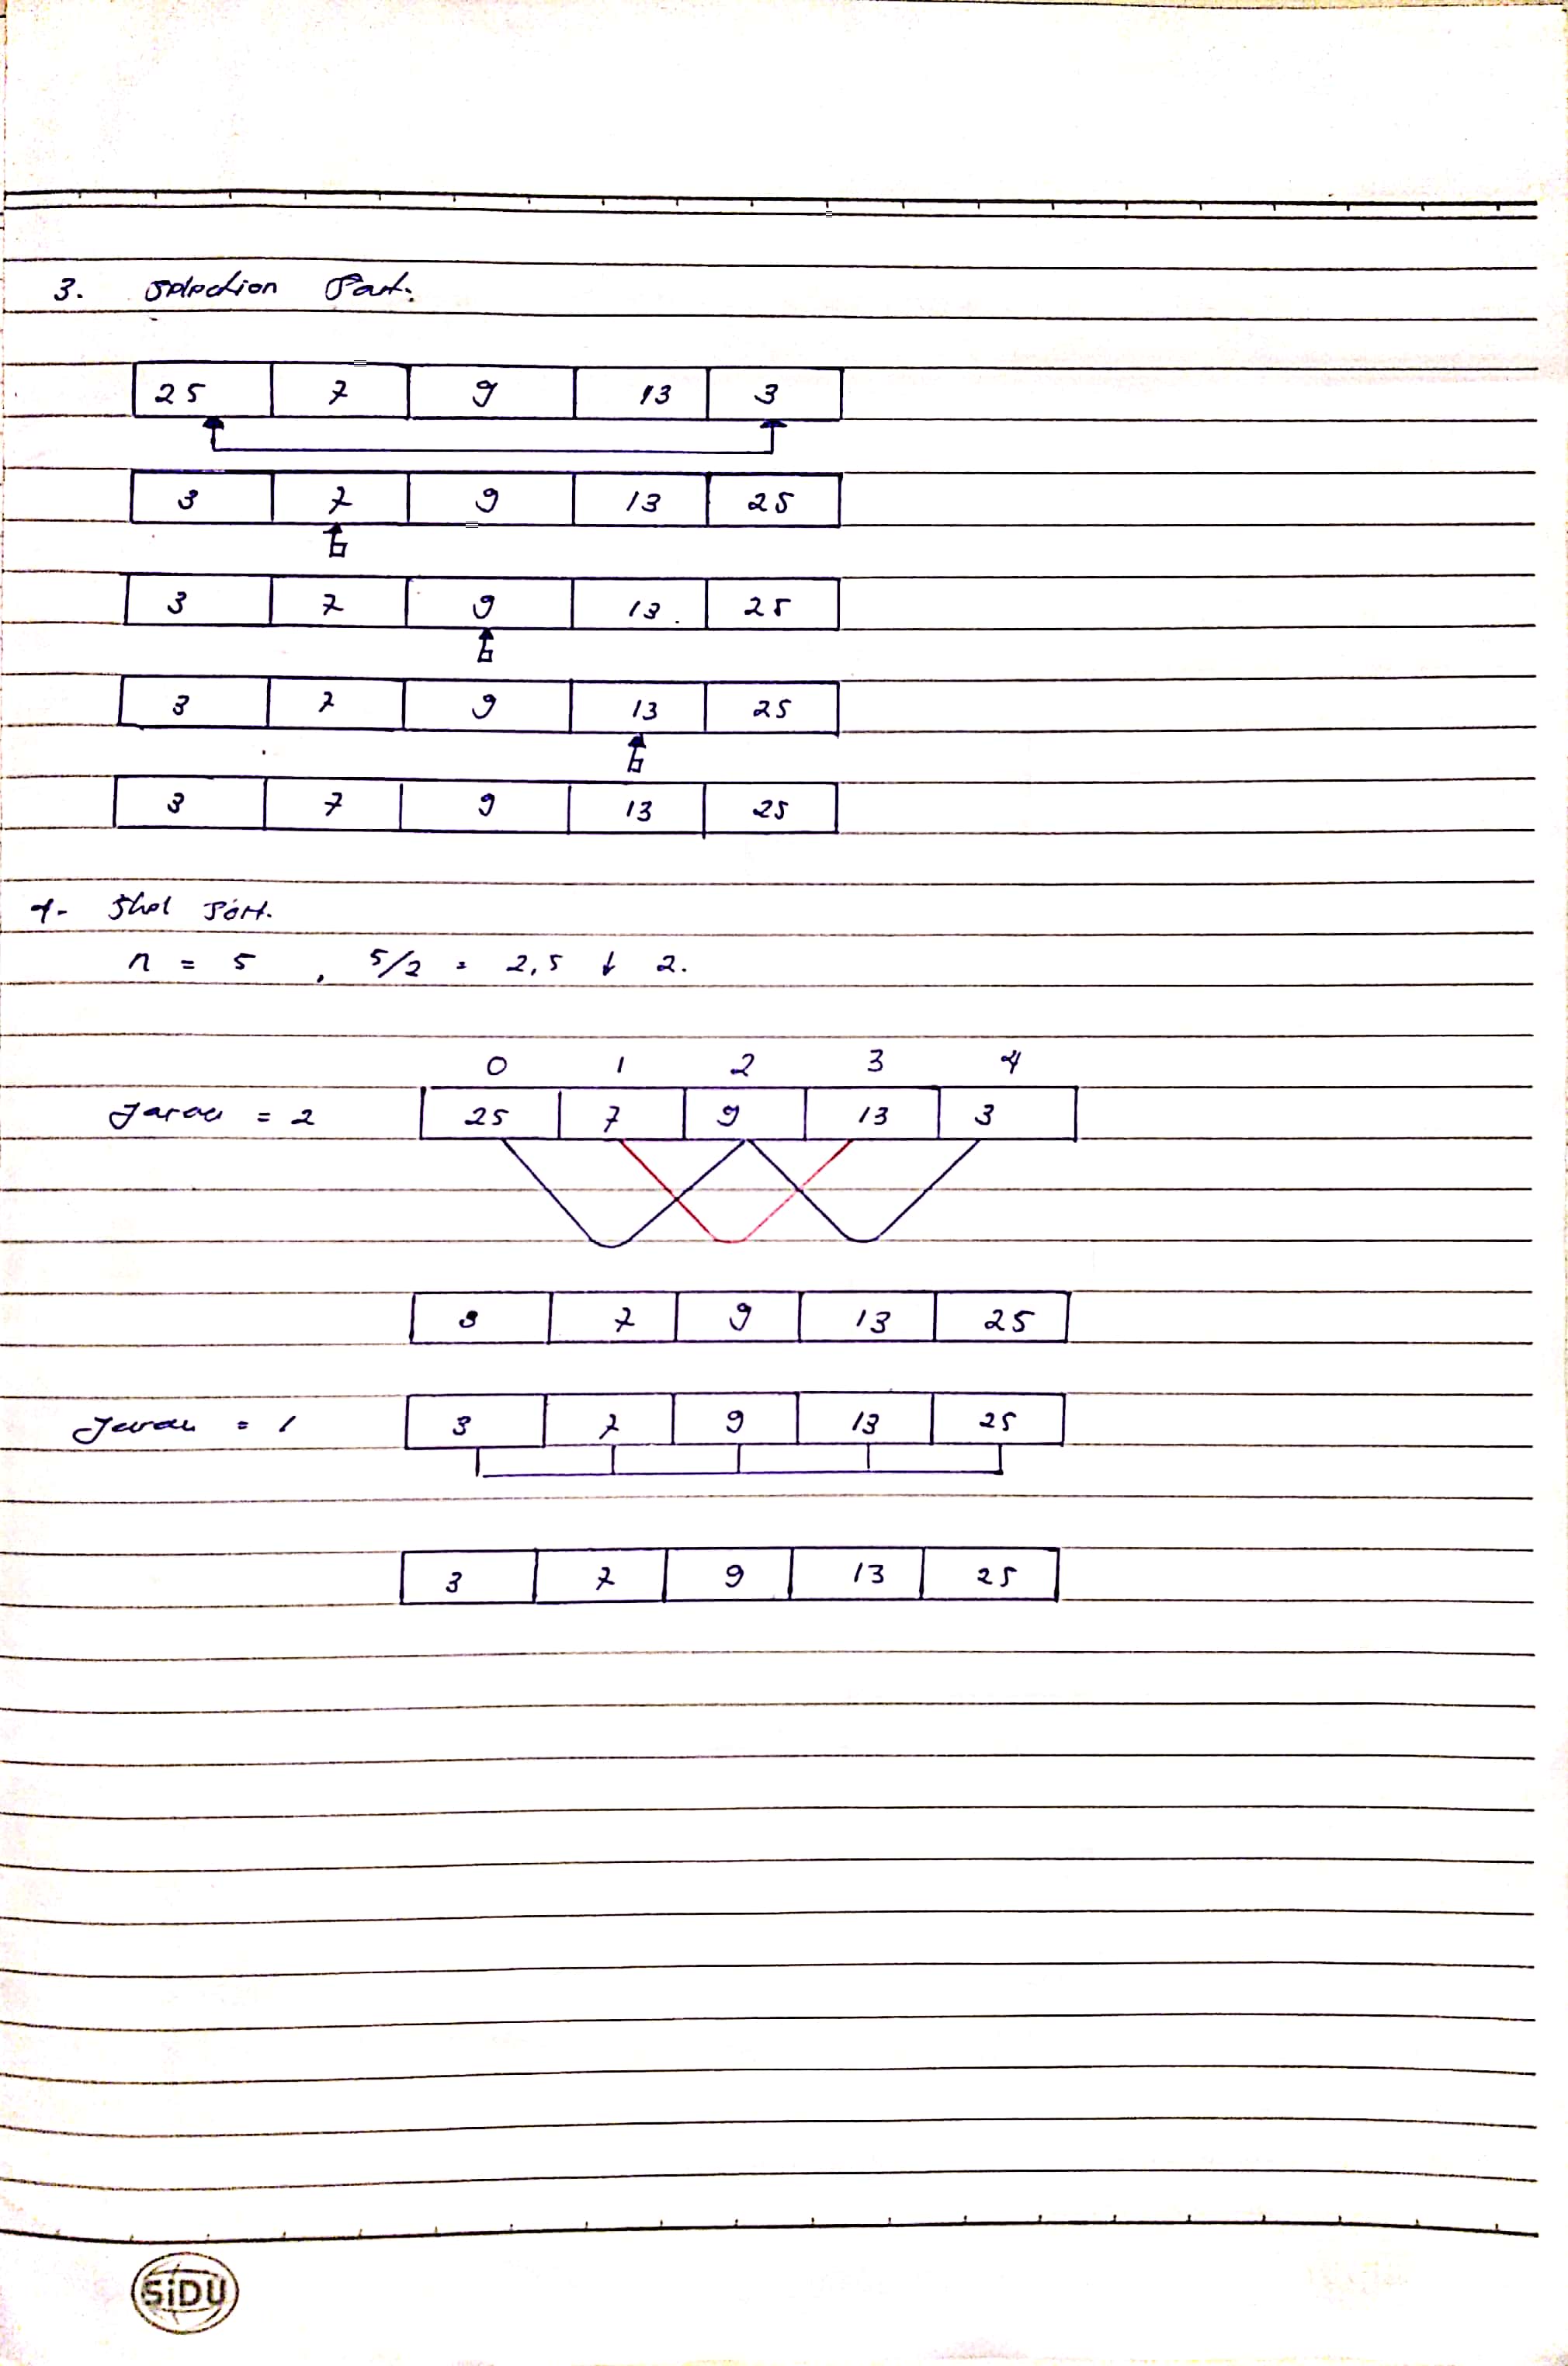 3. Selection Sort.
25 7 9 13 3
3 7 9 13 25
3 7 9 13 25
3 7 9 13 25
3 7 9 13 25
4. Shel Sort.
n = 5 , 5/2 = 2,5 ↓ 2.
0 1 2 3 4
Jarak = 2 25 7 9 13 3
3 7 9 13 25
Jarak = 1 3 7 9 13 25
3 7 9 13 25
SiDU